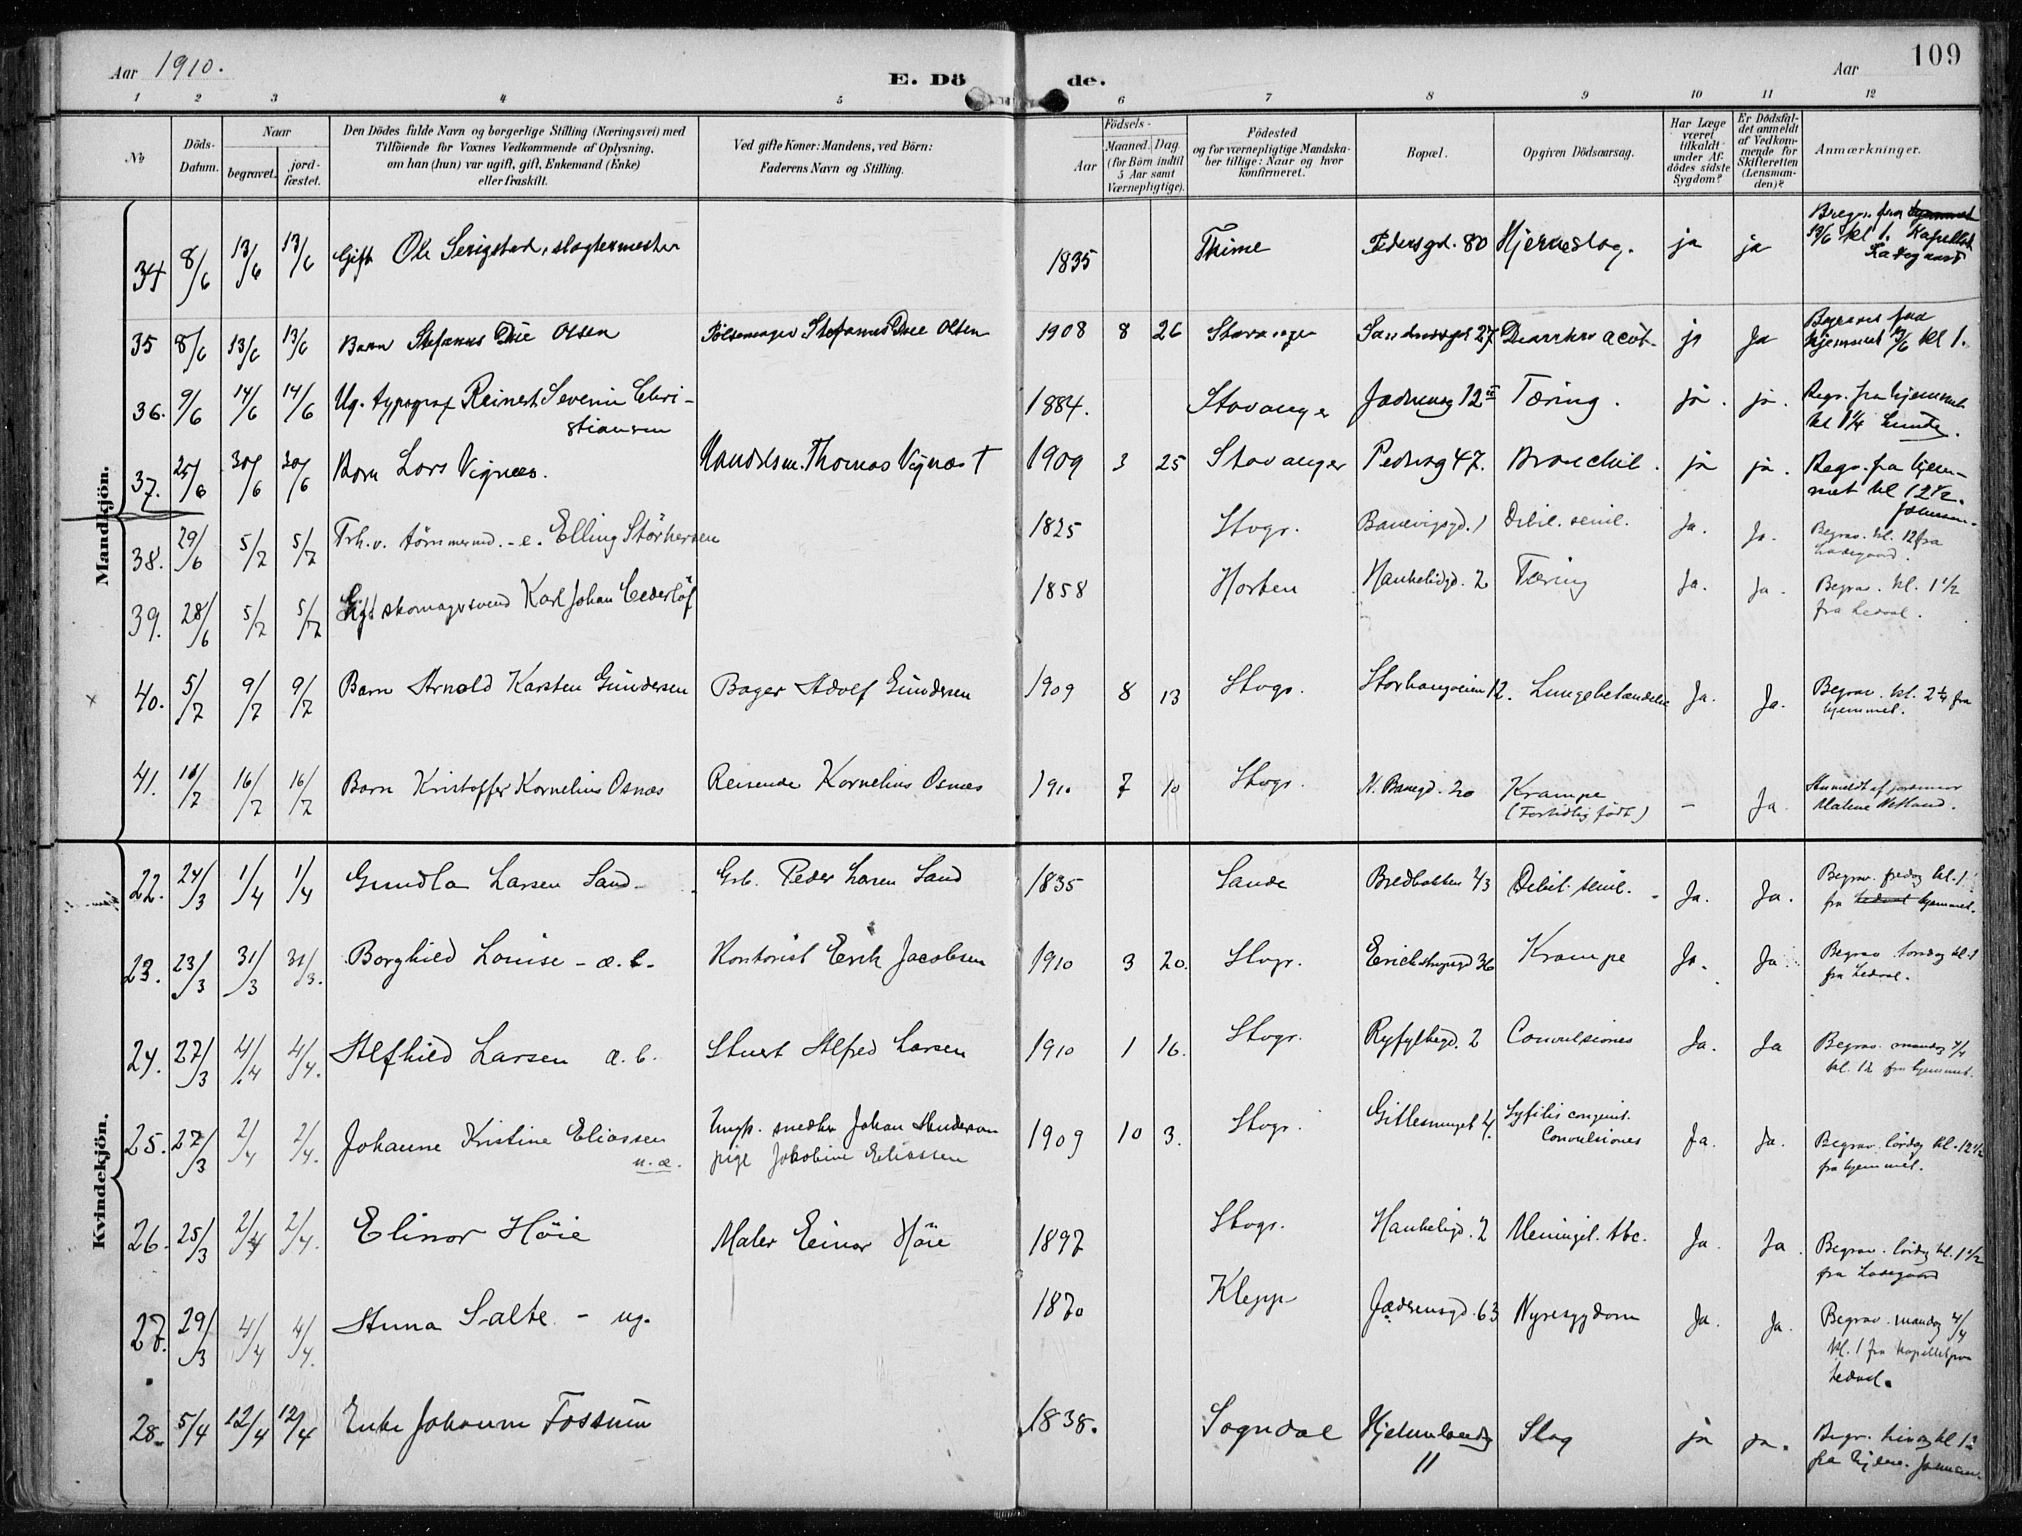 109
Aar 1910.
E. Döde.
Aar
1 2 3 4 5 6 7 8 9 10 11 12
No
Döds-Datum.
Naar
begravet.
jordfæstet.
Den Dödes fulde Navn og borgerlige Stilling (Næringsvei) med
Tilföiende for Voxnes Vedkommende af Oplysning,
om han (hun) var ugift, gift, Enkemand (Enke)
eller fraskilt.
Ved gifte Koner: Mandens, ved Börn:
Faderens Navn og Stilling.
Födsels-
Aar
Maaned. Dag
(for Börn indtil
5 Aar samt
Værnepligtige).
Födested
og for værnepligtige Mandska-
ber tillige: Naar og hvor
konfirmeret.
Bopæl.
Opgiven Dödsaarsag.
Har Læge
været
tilkaldt
under Af-
dödes sidste
Sygdom?
Er Dödsfal-
det anmeldt
af Vedkom-
mende for
Skifteretten
(Lensman-
den)?
Anmærkninger.
Mandkjön.
34 8/6 13/6 13/6 Gift Ole Serigstad, slagtermester 1835 Thime Pedersgd. 80 Hjerneslag. ja ja
kl 1. Kapellet
35 8/6 13/6 13/6 Barn Stefanus Olsen Stefanus Olsen 1908 8 26 Stavanger 27 ja Ja Begraves fra
hjemmet kl 1.
36. 9/6 14/6 14/6 Ug. typograf Reinert Severin Chri-
stiansen 1884. Stavanger Jæderveg 12 Tæring. ja. ja. Begr. fra hjemmet
kl 1¼ Lunde.
37. 25/6 30/6 30/6 Barn Lars Vignæs. Thomas Vignæs † 1909 3 25 Stavanger Pedersg 47. Bronchit. ja ja. Begr. fra hjem-
met kl 12½.
38. 29/6 5/7 5/7 Frh.v. tömmermd. - e. Elling Störkersen 1825 Stvgr. Banevigsgd. 1 Debil. senil. Ja. Ja. Begrav. kl. 12 fra
Ladegaard.
39. 28/6 5/7 5/7 Gift skomagersvend Karl Johan Cederlöf 1858 Horten Haukeligd. 2 Tæring Ja. Ja. Begrav. kl. 1½
fra Ledaal.
40. 5/7 9/7 9/7 Barn Arnold Karsten Gundersen Bager Adolf Gundersen 1909 8 13 Stvgr. Storhaugveien 12. Lungebetændelse Ja. Ja. Begrav. kl. 2¼ fra
hjemmet.
41. 10/7 16/7 16/7 Barn Kristoffer Kornelius Osnæs Reisende Kornelius Osnæs 1910 7 10 Stvgr. N. Banegd. 20 Krampe
(Fortidlig födt) - Ja. Anmeldt af jordmor
Malene
Kvindekjön.
22. 24/3 1/4 1/4 Gundla Larsen Sand Peder Larsen Sand 1835 Sande Bredbakken 43 Debil. senil. Ja. Ja. Begrav. fredag kl. 1
fra Ledaal hjemmet.
23. 23/3 31/3 31/3. Borghild Louise - æ.b. Kontorist Erik Jacobsen 1910 3 20. Stvgr. Erichstrupsgd 36 Krampe Ja. Ja. Begrav. torsdag kl. 1
fra Ledaal.
24. 27/3 4/4 4/4. Alfhild Larsen æ.b. Stuert Alfred Larsen 1910 1 16. Stvgr. Ryfylkegd. 2 Convulsiones Ja. Ja Begrav. mandag 4/4
kl. 12 fra hjemmet.
25. 27/3 2/4 2/4. Johanne Kristine Eliassen
u.æ. Ungk. smed Johan Andersen
pige Jakobine Eliassen 1909 10 3. Stvgr. Gitlesmuget 4. Syfilis congenit.
Convulsiones Ja. Ja. Begrav. lördag kl. 12½
fra hjemmet.
26. 25/3 2/4 2/4. Elinor Höie Maler Einar Höie 1897 Stvgr. Haukeligd. 2 Meningit. tbc. Ja. Ja. Begrav. lördag kl. 1½
fra Ladegaard
27. 29/3 4/4 4/4. Anna Salte - ug. 1870 Klepp Jæderensgd. 63 Nyresygdom Ja. Ja. Begrav. mandag 4/4
kl. 1 fra Kapellet paa
Ledaal.
28. 5/4 12/4 12/4 Enke Johanne Fossum 1838. Sogndal
11 Slag ja ja. Begr. kl 1
fra hjem.